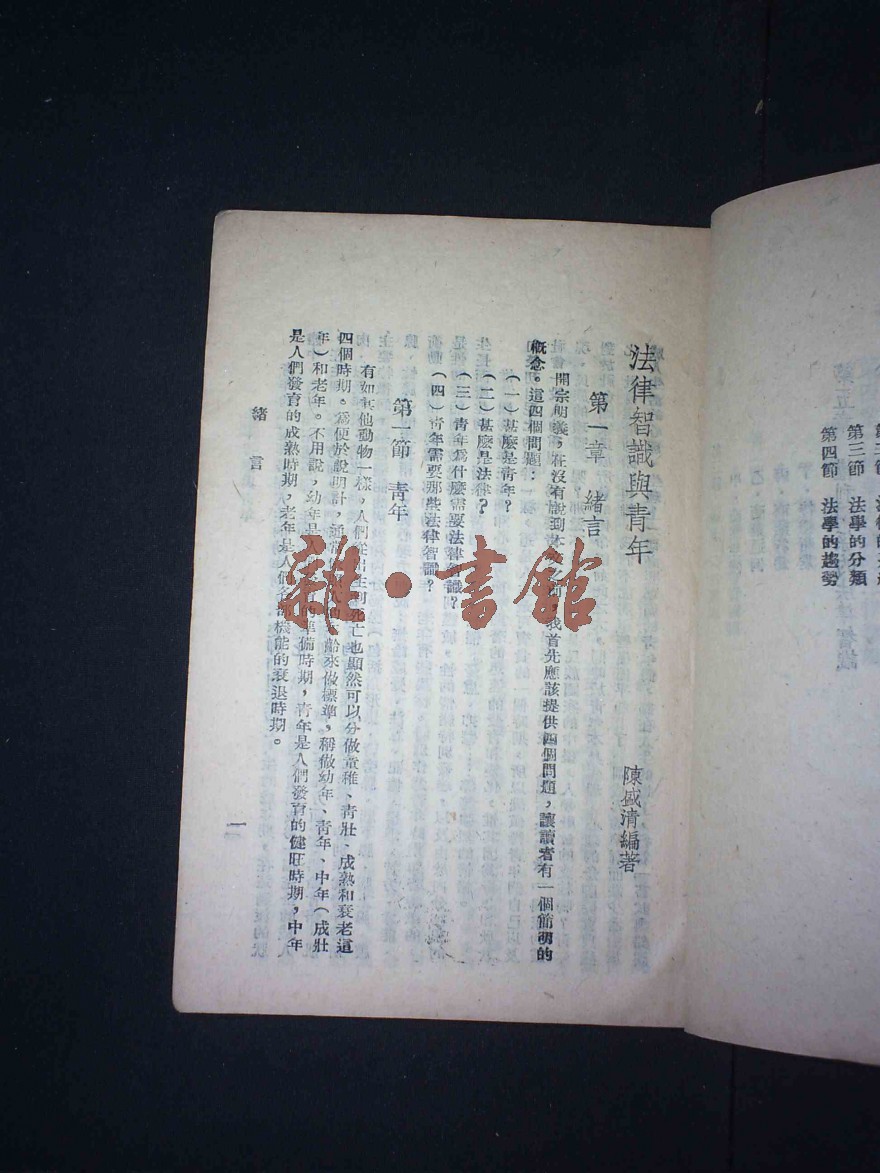 第三節　法學的分類
第四節　法學的趨勢
法律智識與青年
陳盛清編著
第一章　緒言
開宗明義，在沒有說到本，我首先應該提供四個問題，讓讀者有一個簡明的
概念。這四個問題：
（一）甚麼是青年？
（二）甚麼是法律？
（三）青年爲什麼需要法律智識？
（四）青年需要那些法律智識？
第一節　青年
有如其他動物一樣，人們從出生到死亡也顯然可以分做童稚、青壯、成熟和衰老這
四個時期。爲便於說明計，通常齡來做標準，稱做幼年、青年、中年（成壯
年）和老年。不用說，幼年是人的準備時期，青年是人們發育的健旺時期，中年
是人們發育的成熟時期，老年是人們各部機能的衰退時期。
緒言
一
雜・書館